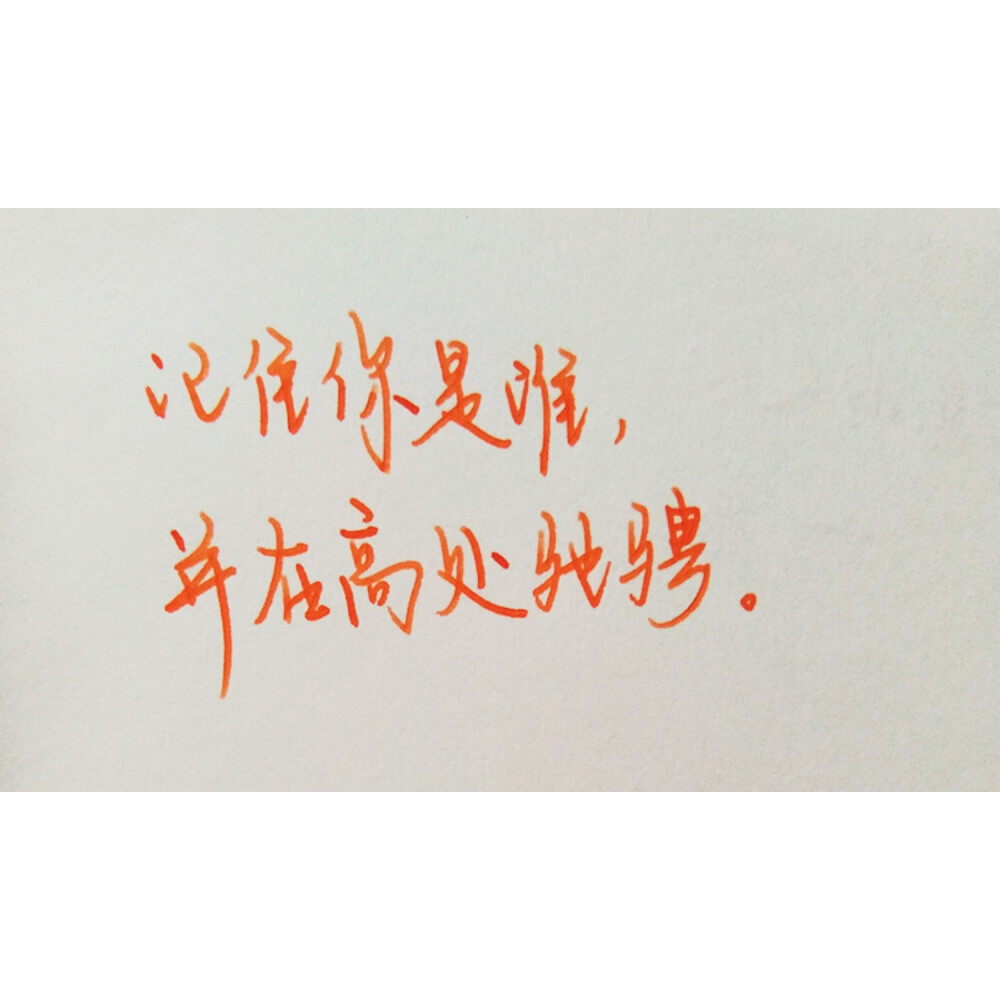 记住你是谁，
并在高处驰骋。